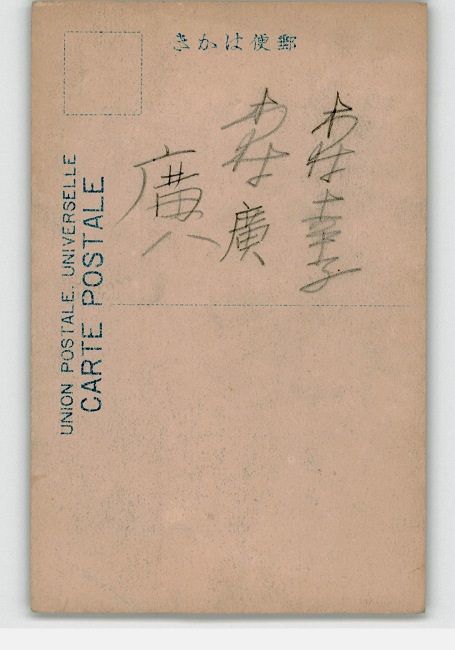 きかは便郵
幸子
廣
廣
UNION POSTALE UNIVERSELLE
CARTE POSTALE